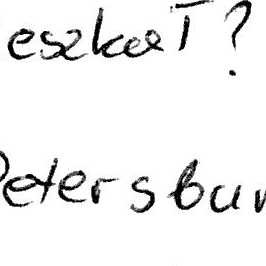 eszkaT?
Petersbur